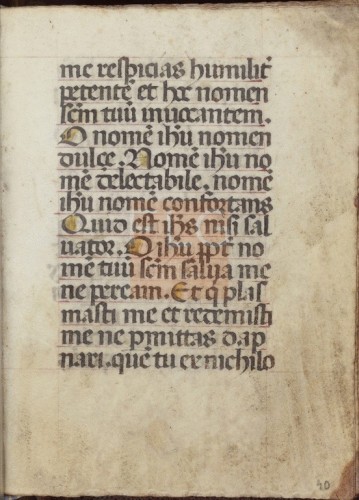 me respicias humilit̄
petentē et hoc nomen
scm̄ tuū inuocantem.
O nomē ihū nomen
dulce. Nomē ihū no
mē delectabile. nomē
ihū nomē confortans
Quid est ihs̄ nisi sal
uator. O ihū ꝓpt̄ no
mē tuū scm̄ salua me
ne peream. Et q̄ plas
masti me et redemisti
me ne ꝑmittas dāp
nari. quē tu ex nichilo
40